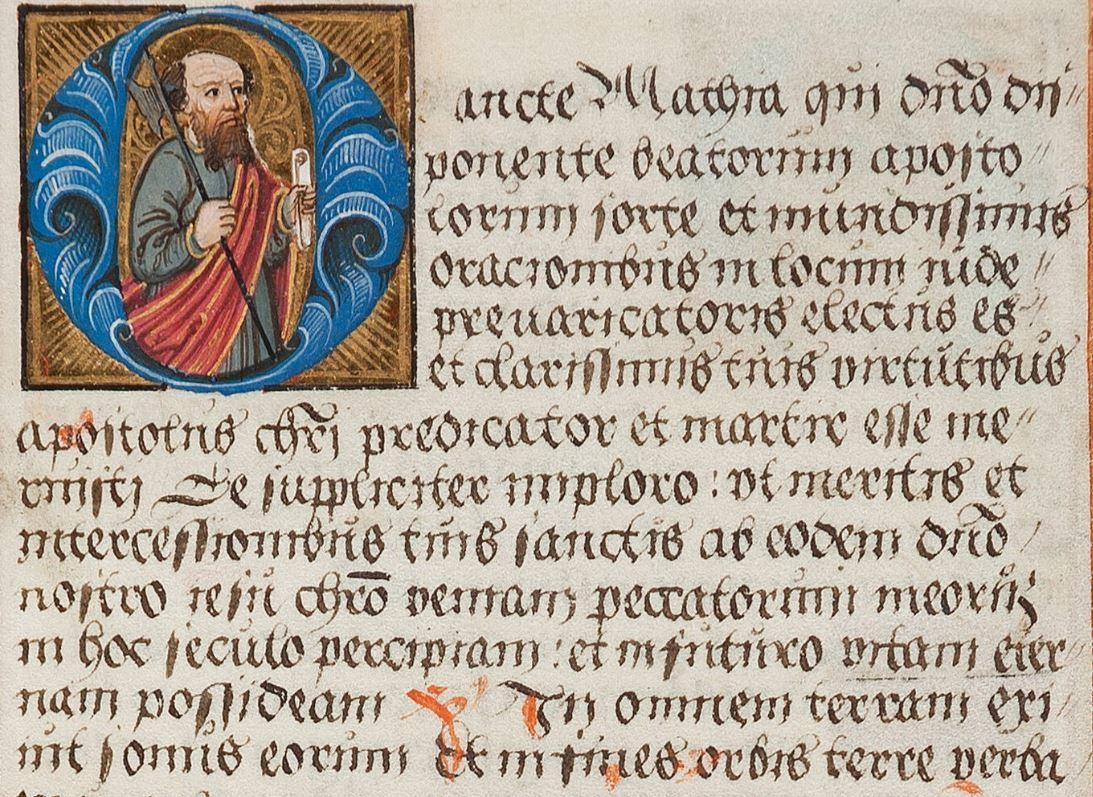 ancte Mathia qui dño dis//
ponente beatorum aposto//
lorum sorte et mundissimis
oracionibus in locum iude//
prevaricatoris electus es//
et clarissimus tuis virtutibus
apostolus chri predicator et martir esse me//
ruisti Te suppliciter imploro : ut meritis et
intercessionibus tuis sanctis ab eodem dño/
nostro iesu chro veniam peccatorum meorum
in hoc seculo percipiam : et in futuro vitam eter/
nam possideam ℣ In omnem terram exi/
uit sonus eorum Et in fines orbis terre verba